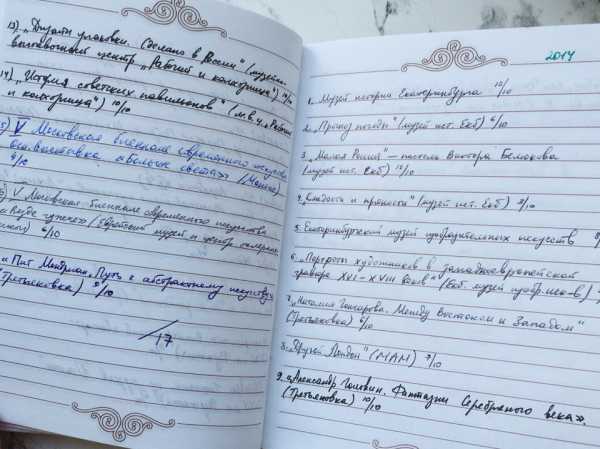 13) „Дизайн упаковки. Сделано в России" (музейно-
выставочный центр „Рабочий и колхозница") 10/10
14) „История советских павильонов" (м.в.ц. „Рабочий
и колхозница") 10/10
5) V Московская биеннале современного искусства
осн. выставка «Больше света» (Манеж)
9/10
6) V Московская биеннале современного искусства
(Еврейский музей и центр
6/10
«Пит Мондриан. Путь к абстрактному искусству»
(Третьяковка) 9/10
17
2014
1. „Музей истории Екатеринбурга 10/10
2. „Прогноз погоды" (музей ист. Екб) 6/10
3. „Малая Россия" – пастель Виктора
(музей ист. Екб) 10/10
4. „Сладости и пряности" (музей ист. Екб) 8/10
5. Екатеринбургский музей изобразительных искусств
6. „Шедевры художников в западноевропейской
гравюре XVI – XVIII веков" (Екб. музей изобр. иск-в)
7. „Наталия Гончарова. Между Востоком и Западом"
(Третьяковка)
8. „Другой Лондон" (МАММ) 7/10
9. «Александр Головин. Фантазии Серебряного века».
(Третьяковка) 10/10